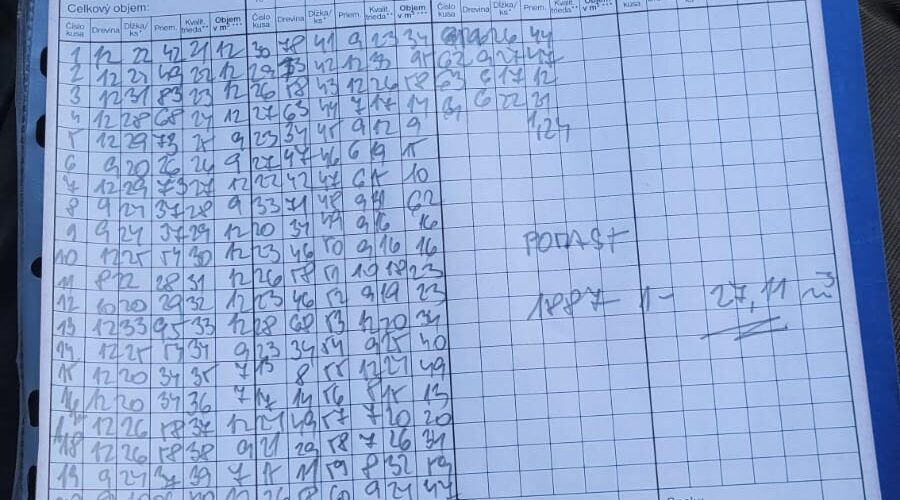 Celkový objem:
Číslo kusa Drevina Dĺžka/ks* Priem. Kvalit. trieda** Objem v m³*** Číslo kusa Drevina Dĺžka/ks* Priem. Kvalit. trieda** Objem v m³*** Číslo kusa Drevina Dĺžka/ks* Priem.
1 12 22 42 21 12 30 78 41 9 23 34 26 44
2 12 24 49 22 12 29 73 42 12 95 62 9 27 47
3 12 31 83 23 12 26 58 43 12 26 58 63 6 17 12
4 12 28 68 24 12 27 63 44 7 17 14 6 22 21
5 12 29 73 25 9 23 34 45 9 12 9 1,24
6 9 20 26 26 9 27 47 46 6 19 15
7 12 29 73 27 12 22 42 47 6 15 10
8 9 24 37 28 9 33 71 48 9 62
9 9 24 37 29 12 20 34 49 9 16 16
10 12 25 54 30 12 23 46 50 9 16 16
11 8 22 28 31 12 26 58 51 10 18 23
12 10 20 29 32 12 23 46 52 9 19 23
13 12 33 95 33 12 28 68 53 12 20 34
14 12 25 54 34 9 23 34 54 9 25 40
15 12 20 34 35 7 13 8 55 12 24 49
16 12 20 34 36 7 17 14 56 8 15 13
17 12 26 58 37 12 24 49 57 7 20 20
18 12 26 58 38 9 21 29 58 7 26 34
19 9 24 37 39 7 15 11 59 8 32 59
12 26 58 60 9 24 47
1887 27,11 m³